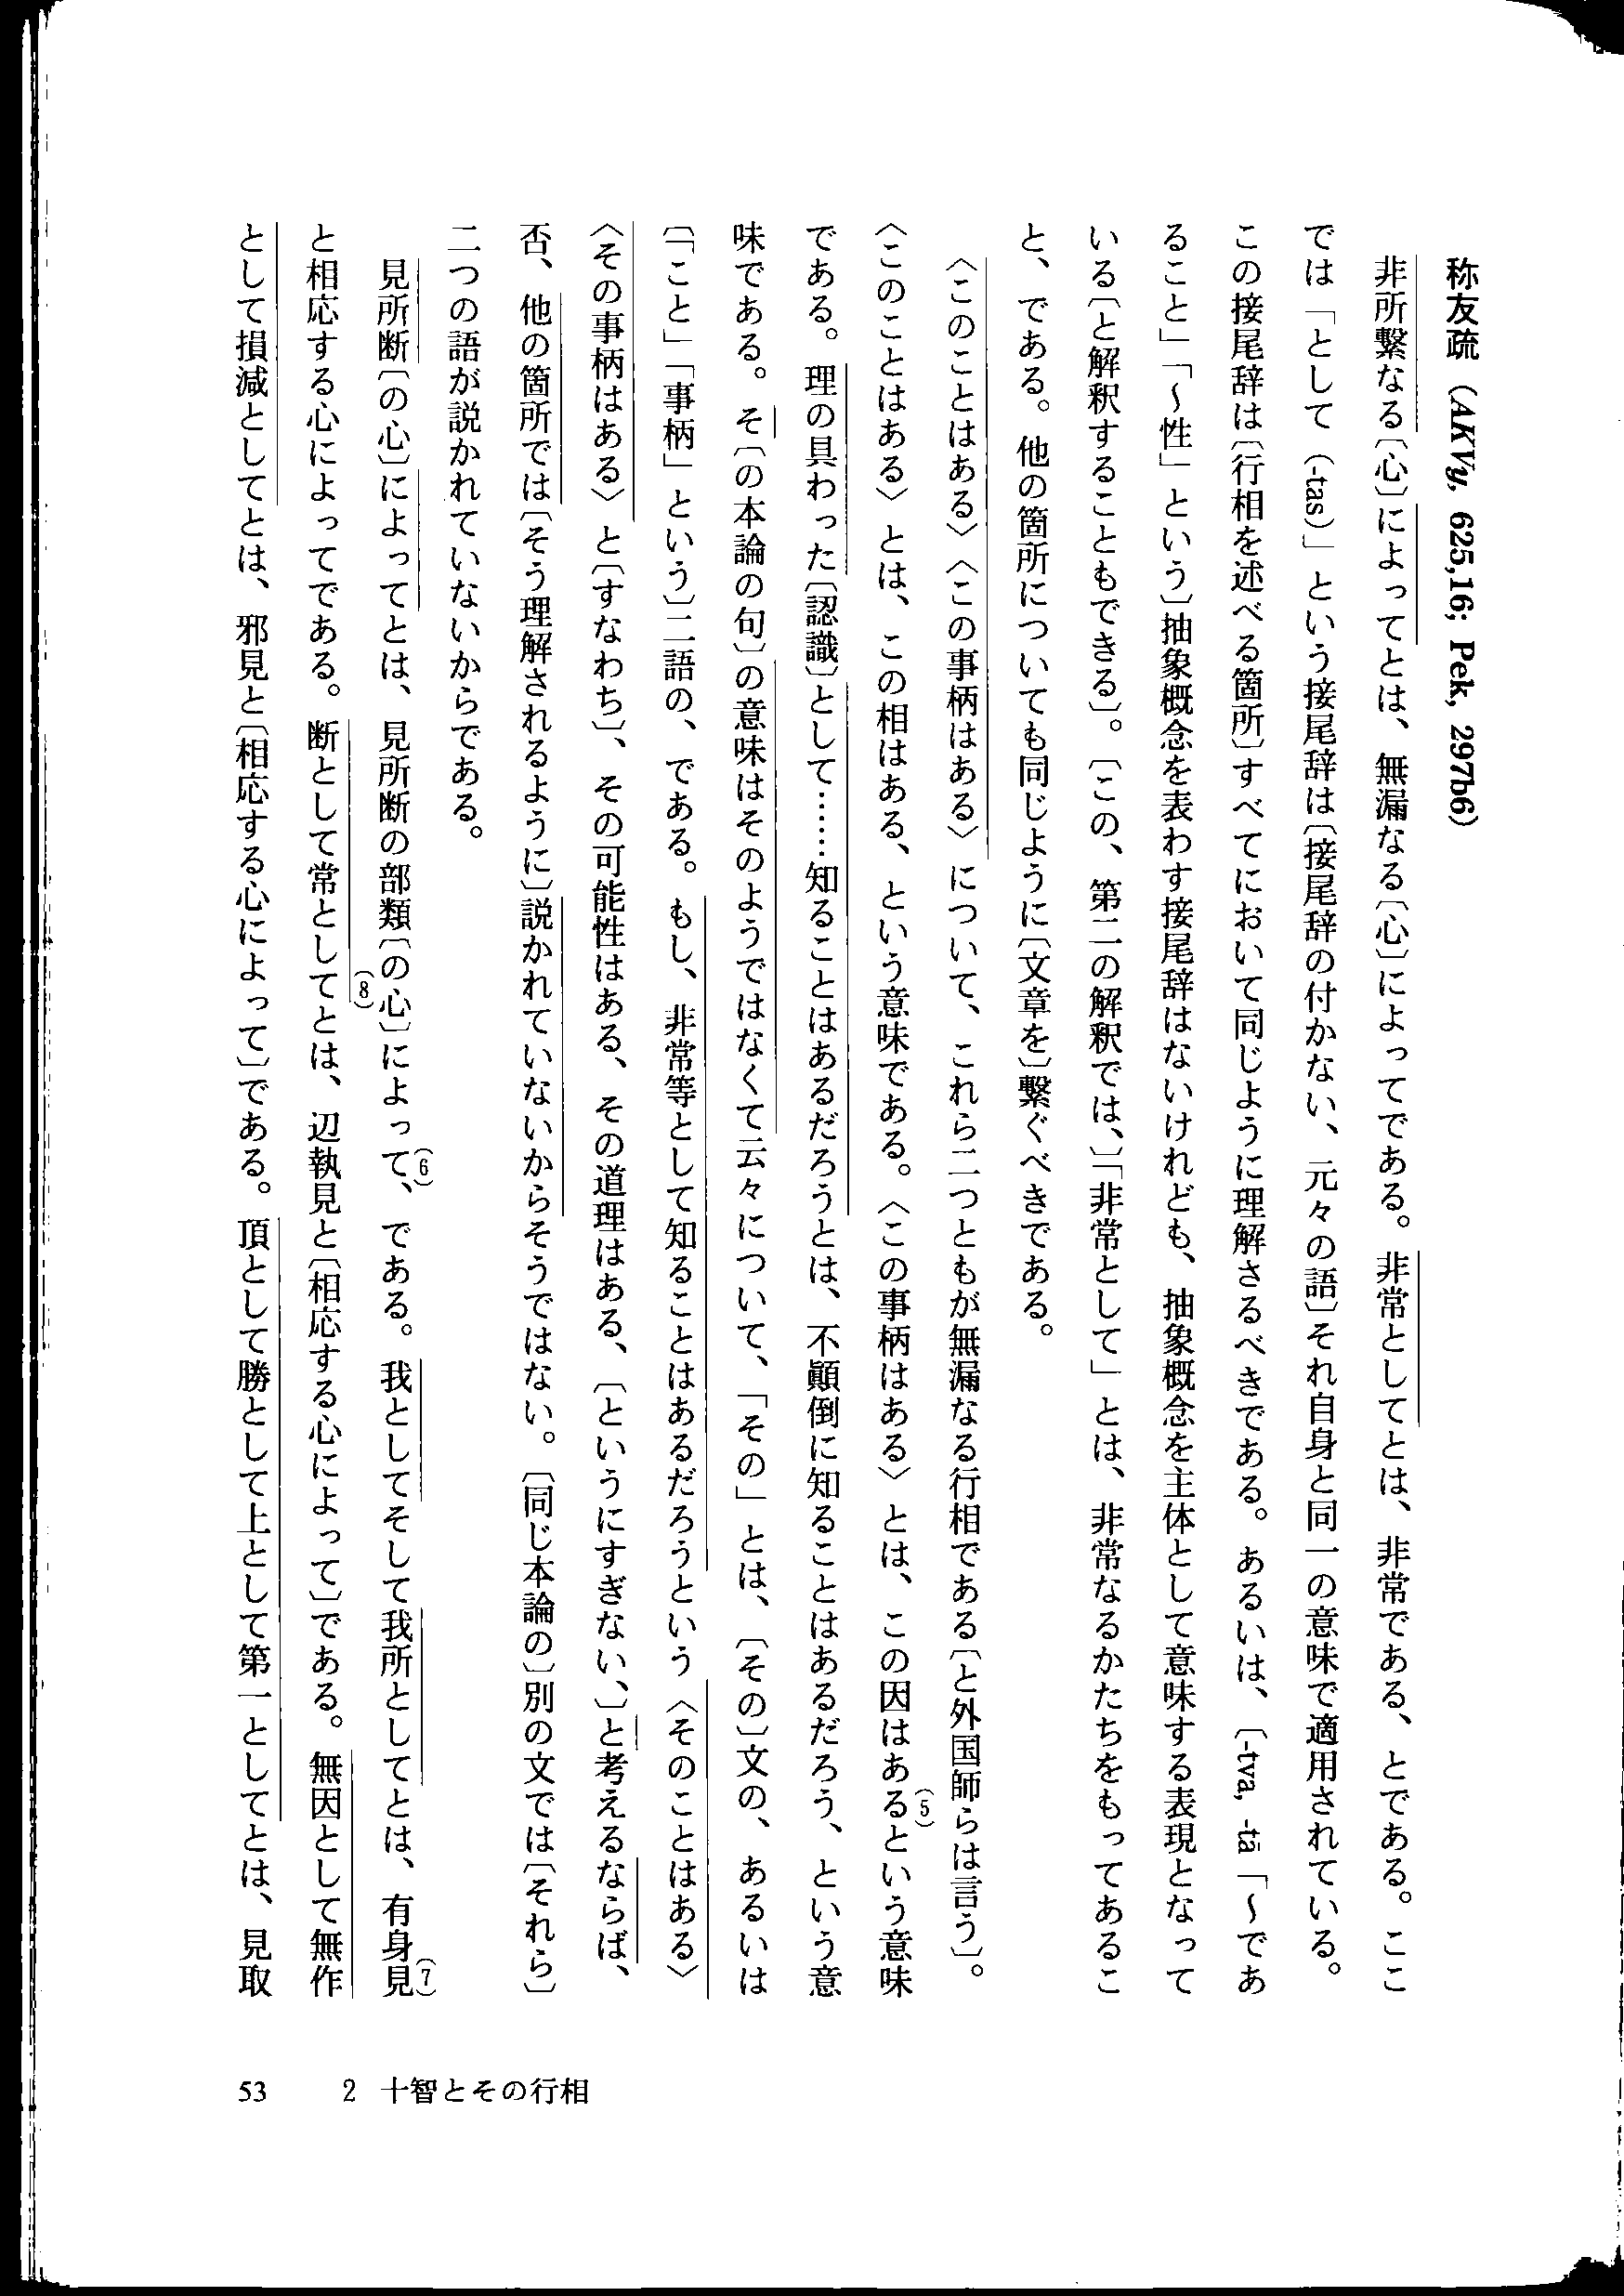 称友疏（AKVy, 625,16; Pek, 297b6）
非所繫なる〔心〕によってとは、無漏なる〔心〕によってである。非常としてとは、非常である、とである。ここ
では「として（-tas）」という接尾辞は〔接尾辞の付かない、元々の語〕それ自身と同一の意味で適用されている。
この接尾辞は〔行相を述べる箇所〕すべてにおいて同じように理解さるべきである。あるいは、〔-tva, -tā「〜であ
ること」「〜性」という〕抽象概念を表わす接尾辞はないけれども、抽象概念を主体として意味する表現となって
いる〔と解釈することもできる〕。〔この、第二の解釈では、〕「非常として」とは、非常なるかたちをもってあるこ
と、である。他の箇所についても同じように〔文章を〕繫ぐべきである。
〈このことはある〉〈この事柄はある〉について、これら二つともが無漏なる行相である〔と外国師らは言う〕。
〈このことはある〉とは、この相はある、という意味である。〈この事柄はある〉とは、この因はある(5)という意味
である。理の具わった〔認識〕として……知ることはあるだろうとは、不顚倒に知ることはあるだろう、という意
味である。そ〔の本論の句〕の意味はそのようではなくて云々について、「その」とは、〔その〕文の、あるいは
〔「こと」「事柄」という〕二語の、である。もし、非常等として知ることはあるだろうという〈そのことはある〉
〈その事柄はある〉と〔すなわち〕、その可能性はある、その道理はある、〔というにすぎない、〕と考えるならば、
否、他の箇所では〔そう理解されるように〕説かれていないからそうではない。〔同じ本論の〕別の文では〔それら〕
二つの語が説かれていないからである。
見所断〔の心〕によってとは、見所断の部類〔の心〕によって(6)、である。我としてそして我所としてとは、有身見(7)
と相応する心によってである。断として常として(8)とは、辺執見と〔相応する心によって〕である。無因として無作
として損減としてとは、邪見と〔相応する心によって〕である。頂として勝として上として第一としてとは、見取
53　2　十智とその行相